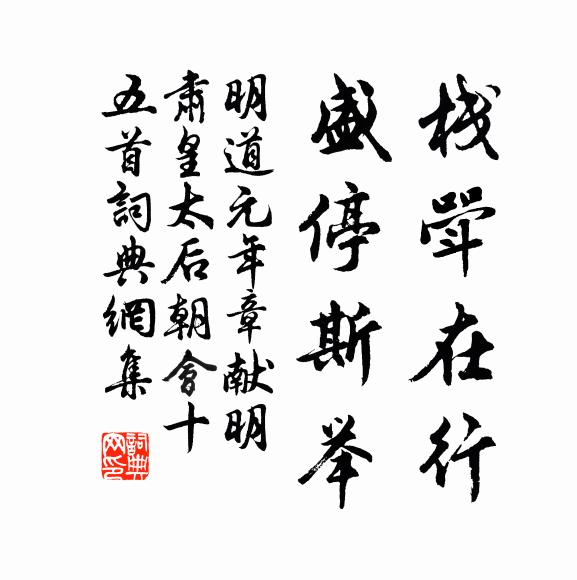 栈斝在行
盛停斯举
明道元年章献明
肅皇太后朝會十
五首詞典網集
詞典
网印